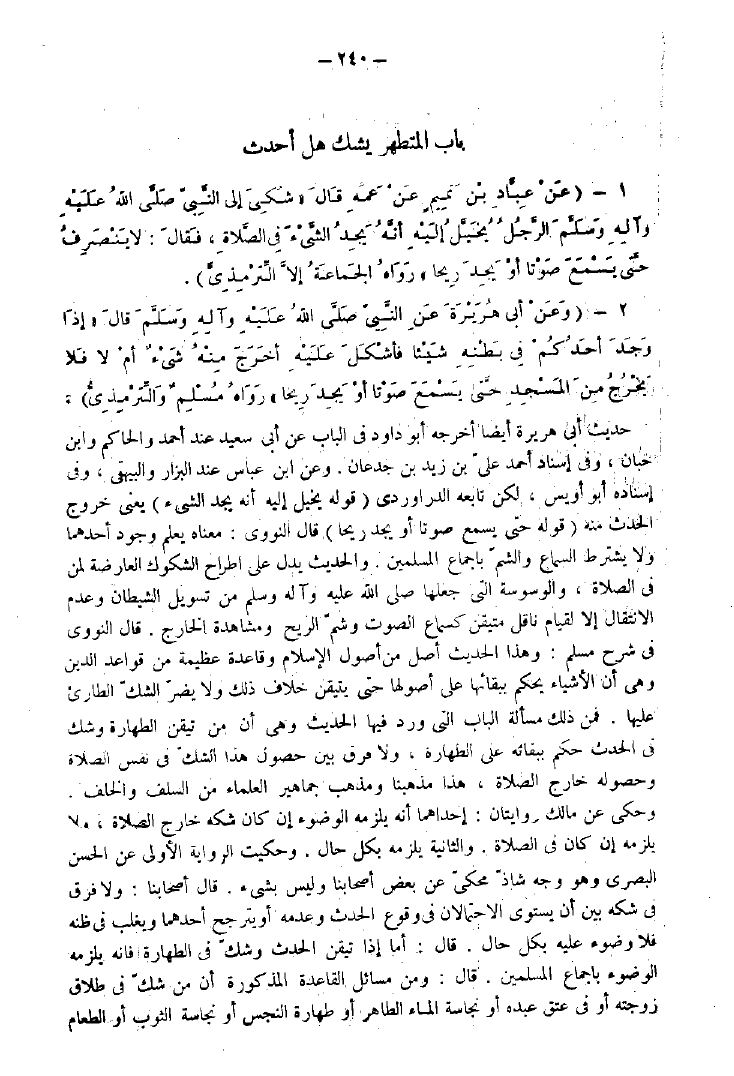 – ٢٤٠ –
باب المتطهر يشك هل أحدث
١ – (عَنْ عَبَّادِ بْنِ تَمِيمٍ عَنْ عَمِّهِ قَالَ «شُكِىَ إِلَى النَّبِيِّ صَلَّى اللهُ عَلَيْهِ
وَآلِهِ وَسَلَّمَ الرَّجُلُ يُخَيَّلُ إِلَيْهِ أَنَّهُ يَجِدُ الشَّيْءَ فِى الصَّلَاةِ ، فَقَالَ : لاَ يَنْصَرِفُ
حَتَّى يَسْمَعَ صَوْتًا أَوْ يَجِدَ رِيحًا» رَوَاهُ الجَمَاعَةُ إِلاَّ التِّرْمِذِىَّ) .
٢ – (وَعَنْ أَبِى هُرَيْرَةَ عَنِ النَّبِيِّ صَلَّى اللهُ عَلَيْهِ وَآلِهِ وَسَلَّمَ قَالَ «إِذَا
وَجَدَ أَحَدُكُمْ فِى بَطْنِهِ شَيْئًا فَأَشْكَلَ عَلَيْهِ أَخَرَجَ مِنْهُ شَيْءٌ أَمْ لَا فَلَا
يَخْرُجْ مِنَ المَسْجِدِ حَتَّى يَسْمَعَ صَوْتًا أَوْ يَجِدَ رِيحًا» رَوَاهُ مُسْلِمٌ وَالتِّرْمِذِىُّ) .
حديث أبى هريرة أيضا أخرجه أبو داود فى الباب عن أبى سعيد عند أحمد والحاكم وابن
حبان ، وفى إسناد أحمد علىّ بن زيد بن جدعان . وعن ابن عباس عند البزار والبيهقى ، وفى
إسناده أبو أويس ، لكن تابعه الدراوردى (قوله يخيل إليه أنه يجد الشىء) يعنى خروج
الحدث منه (قوله حتى يسمع صوتا أو يجد ريحا) قال النووى : معناه يعلم وجود أحدهما
ولا يشترط السماع والشمّ بإجماع المسلمين . والحديث يدل على اطراح الشكوك العارضة لمن
فى الصلاة ، والوسوسة التى جعلها صلى الله عليه وآله وسلم من تسويل الشيطان وعدم
الانتقال إلا لقيام ناقل متيقن كسماع الصوت وشمّ الريح ومشاهدة الخارج . قال النووى
فى شرح مسلم : وهذا الحديث أصل من أصول الإسلام وقاعدة عظيمة من قواعد الدين
وهى أن الأشياء يحكم ببقائها على أصولها حتى يتيقن خلاف ذلك ولا يضرّ الشكّ الطارئ
عليها . فمن ذلك مسألة الباب التى ورد فيها الحديث وهى أن من تيقن الطهارة وشك
فى الحدث حكم ببقائه على الطهارة ، ولا فرق بين حصول هذا الشكّ فى نفس الصلاة
وحصوله خارج الصلاة ، هذا مذهبنا ومذهب جماهير العلماء من السلف والخلف .
وحكى عن مالك روايتان : إحداهما أنه يلزمه الوضوء إن كان شكه خارج الصلاة ، ولا
يلزمه إن كان فى الصلاة . والثانية يلزمه بكل حال . وحكيت الرواية الأولى عن الحسن
البصرى وهو وجه شاذّ محكىّ عن بعض أصحابنا وليس بشىء . قال أصحابنا : ولا فرق
فى شكه بين أن يستوى الاحتمالان فى وقوع الحدث وعدمه أو يترجح أحدهما ويغلب فى ظنه
فلا وضوء عليه بكل حال . قال : أما إذا تيقن الحدث وشكّ فى الطهارة فانه يلزمه
الوضوء باجماع المسلمين . قال : ومن مسائل القاعدة المذكورة أن من شكّ فى طلاق
زوجته أو فى عتق عبده أو نجاسة الماء الطاهر أو طهارة النجس أو نجاسة الثوب أو الطعام